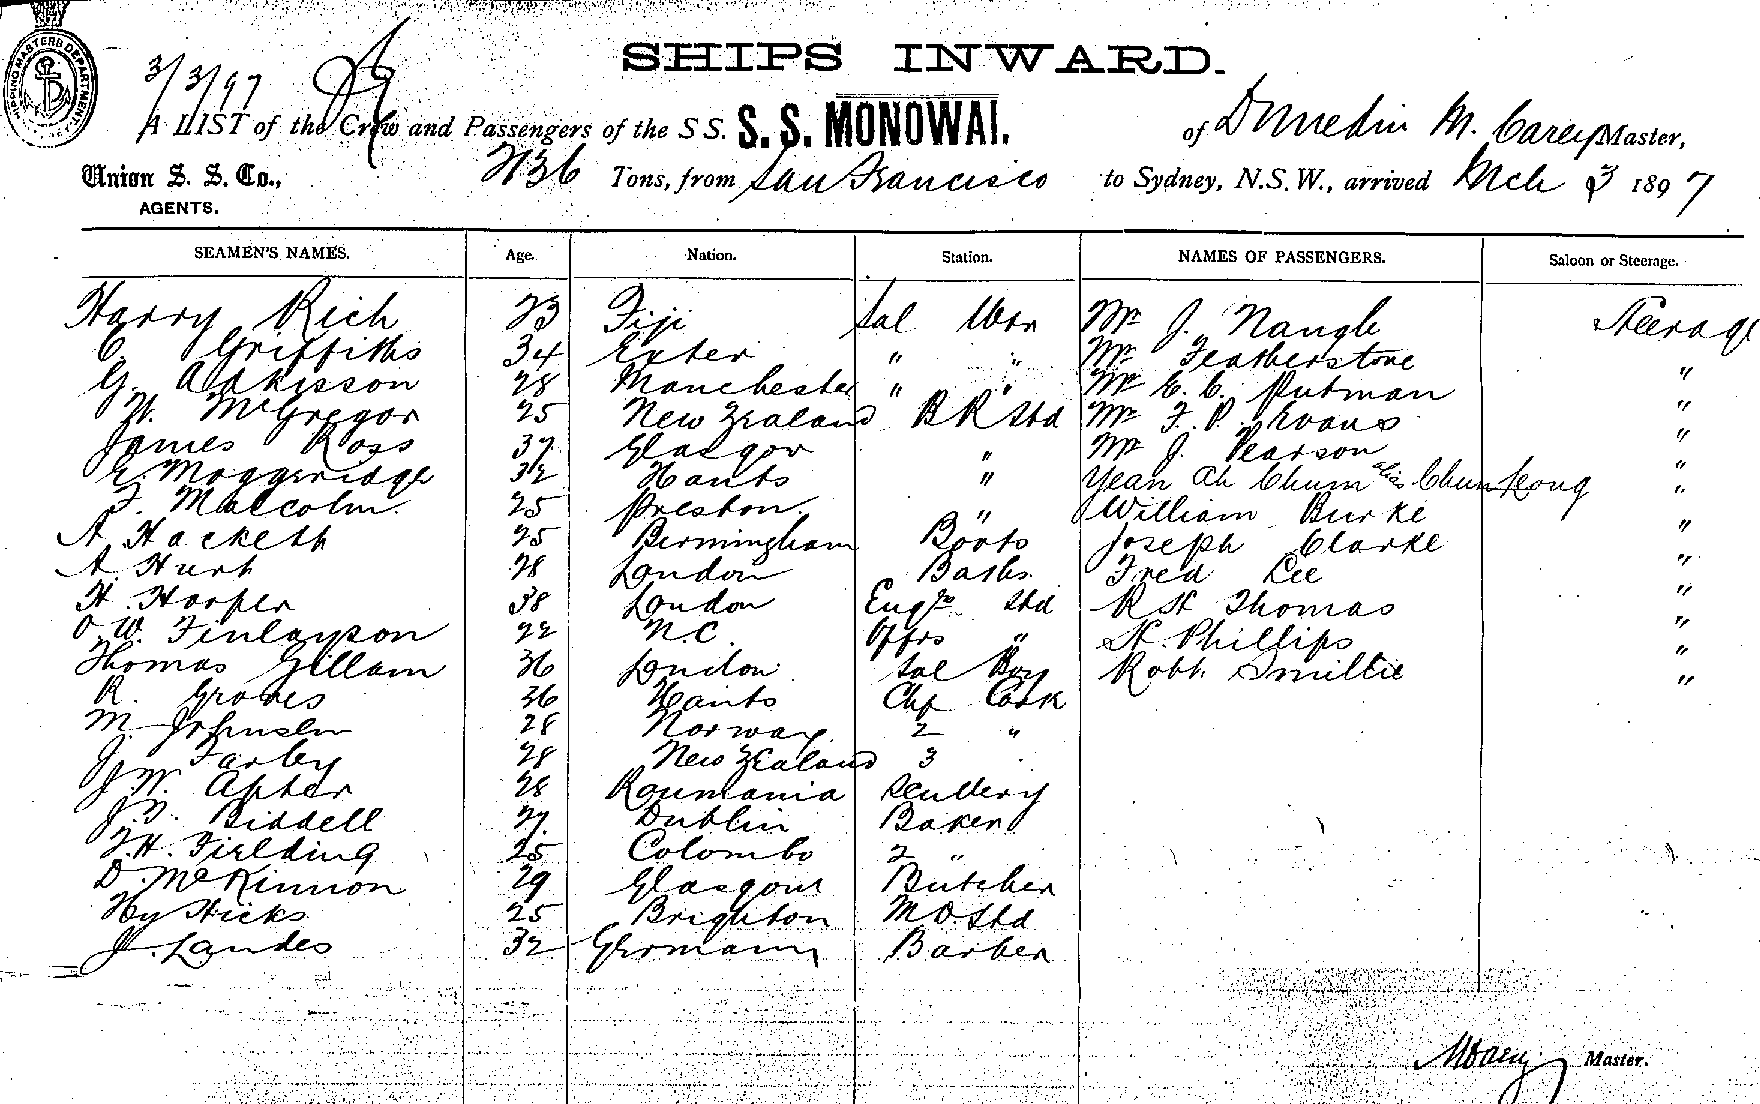 SHIPS INWARD.
3/3/97
A LIST of the Crew and Passengers of the S S. S. S. MONOWAI. of Dunedin M. Carey Master,
Union S. S. Co., 2136 Tons, from San Francisco to Sydney, N.S.W., arrived Mch 3 1897
AGENTS.
SEAMEN'S NAMES. Age. Nation. Station. NAMES OF PASSENGERS. Saloon or Steerage.
Harry Rich 23 Fiji Sal Wtr Mr J. Nangle Steerage
C. Griffiths 34 Exter " " Mr Featherstone "
G. Adkisson 28 Manchester " " Mr E. C. Putman "
McGregor 25 New Zealand B R Std Mr F. P. Evans "
James Ross 37 Glasgow " Mr J. Pearson "
E. Moggeridge 32 Hants " Yean Ah Chum alis Chun Kong "
F. Malcolm. 25 Preston. " William Burke "
A. Hacketh 25 Birmingham Boots Joseph Clarke "
A. Hurt 28 London Baths Fred Lee "
H. Harper 38 London Engrs Std R H Thomas "
O. W. Finlayson 22 N.C. Offrs " H. Phillips "
Thomas Gillam 36 London Sal Boy Robt. Smillie "
R. Groves 36 Hants Chf Cook
M. Johnsen 28 Norway 2 "
J. Farley 28 New Zealand 3
J. W. Apter 28 Roumania Scullery
Biddell 27. Dublin Baker
F. H. Fielding 25 Colombo 2 "
D. McKinnon 29 Glasgow Butcher
Hy Hicks 25 Brighton M O Std
J. Landes 32 Germany Barber
MCarey Master.